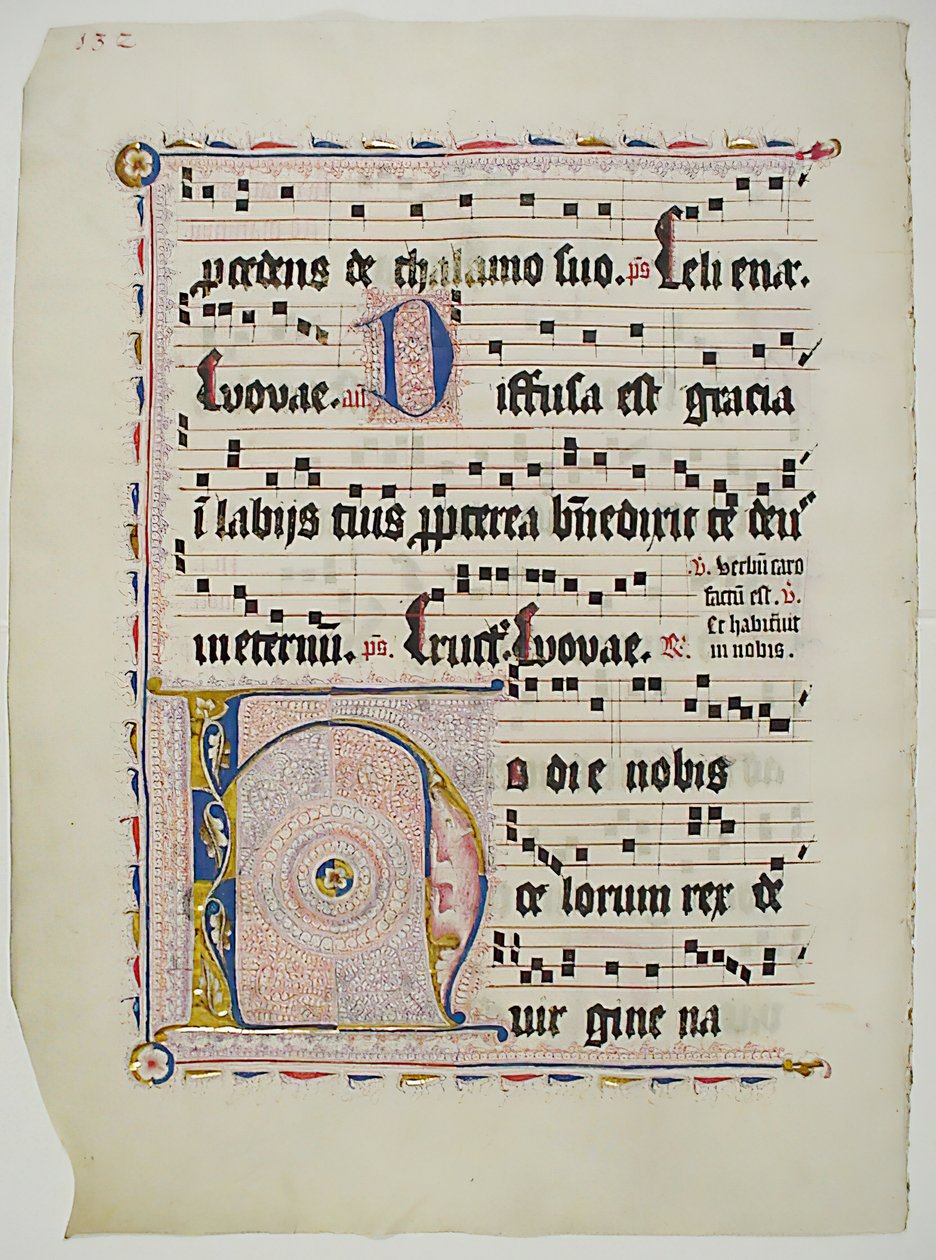 132
procedens de thalamo suo. p̄s Celi enar.
Evovae. añ. Diffusa est gracia
ī labijs tuis ꝓpterea bn̄edixit te deus
in eternū. p̄s. Eruct. Evovae.
v̄. verbū caro
factū est. v̄.
Et habitavit
in nobis.
R̄.
Ho die nobis
ce lorum rex de
vir gine na